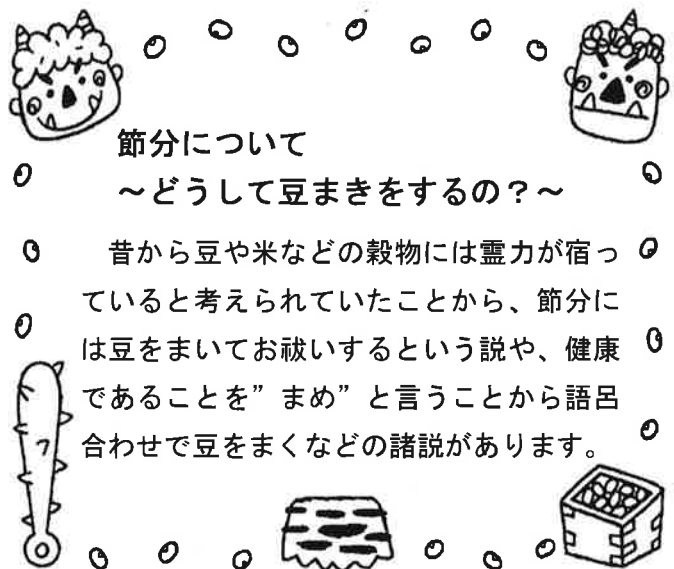 節分について
～どうして豆まきをするの？～
昔から豆や米などの穀物には霊力が宿っ
ていると考えられていたことから、節分に
は豆をまいてお祓いするという説や、健康
であることを”まめ”と言うことから語呂
合わせで豆をまくなどの諸説があります。